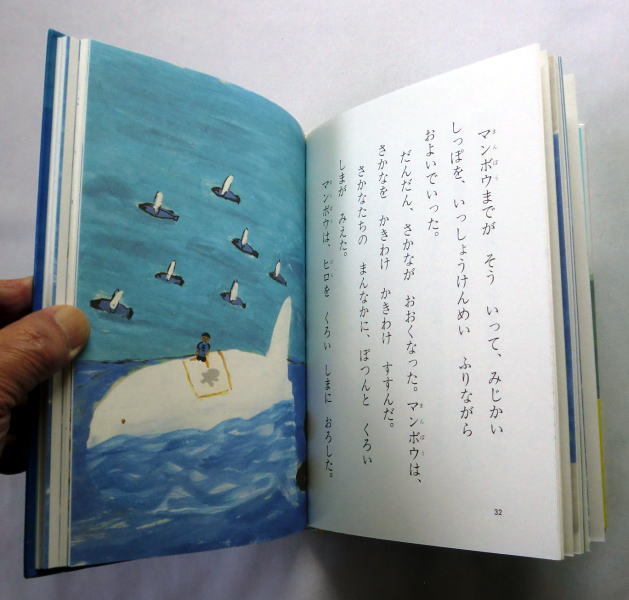 マンボウまでが　そう　いって、みじかい
しっぽを、いっしょうけんめい　ふりながら
およいでいった。
だんだん、さかなが　おおくなった。マンボウは、
さかなを　かきわけ　かきわけ　すすんだ。
さかなたちの　まんなかに、ぽつんと　くろい
しまが　みえた。
マンボウは、ヒロを　くろい　しまに　おろした。
32